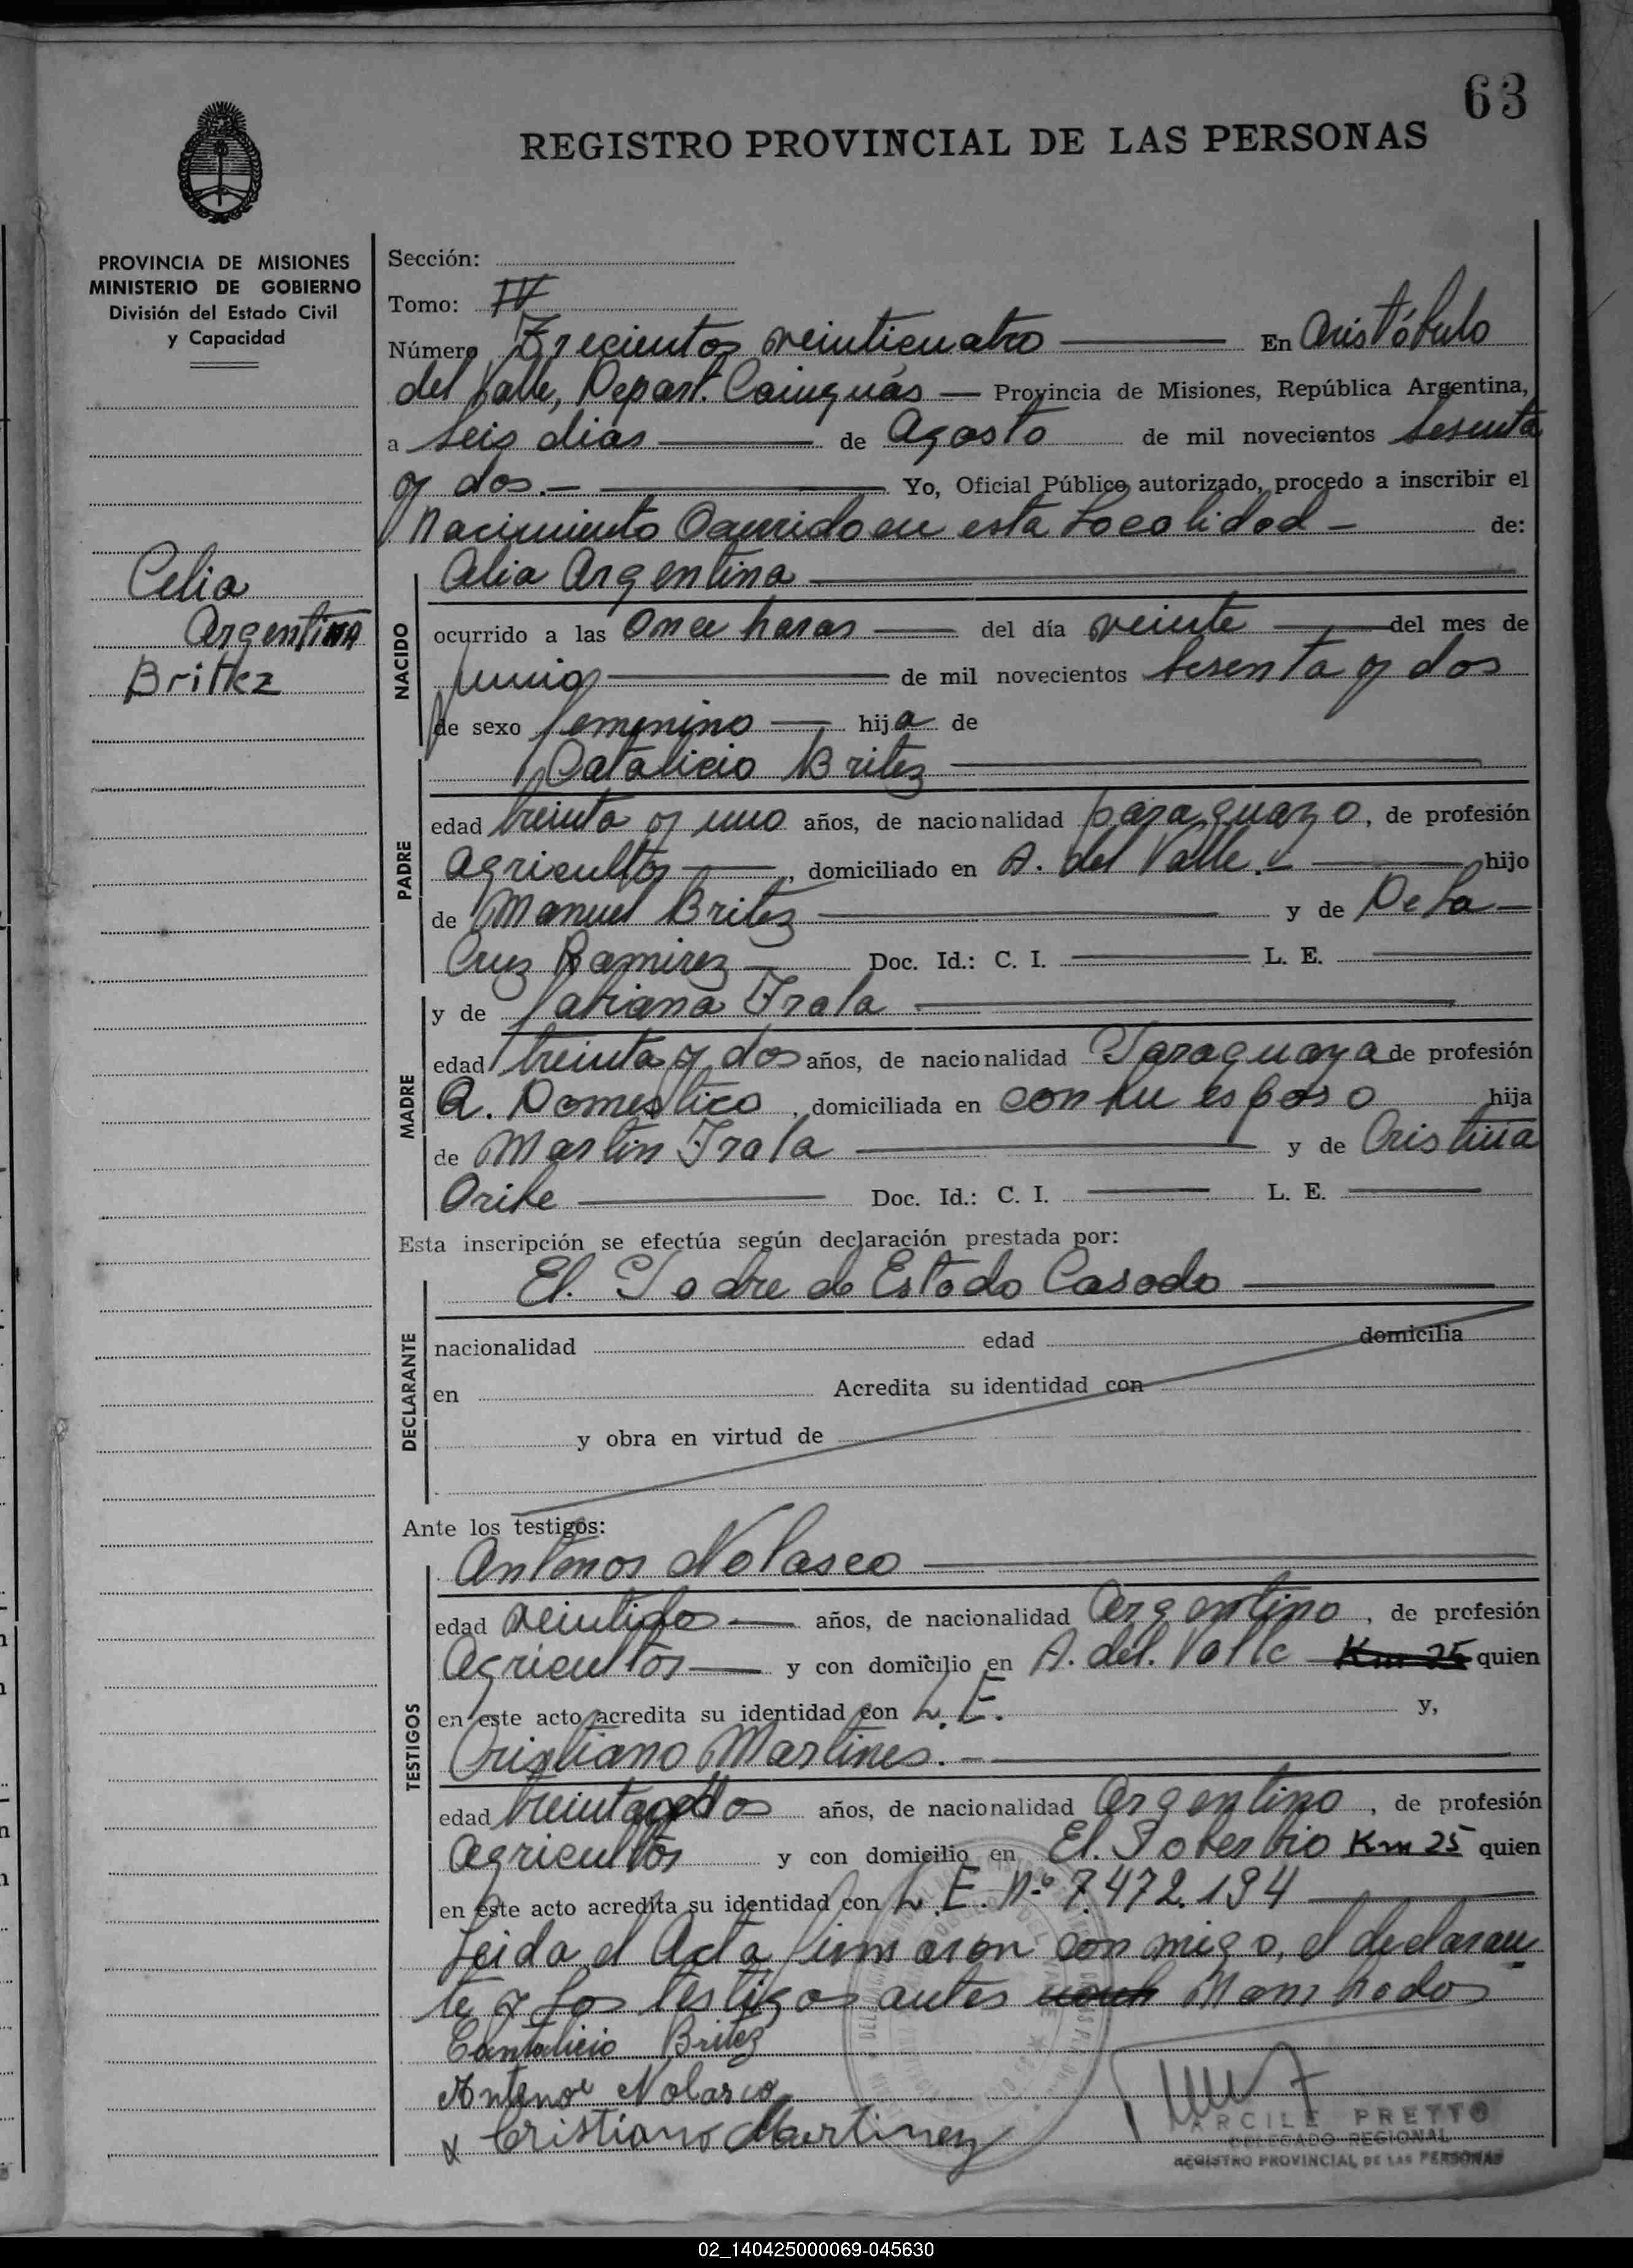 63
REGISTRO PROVINCIAL DE LAS PERSONAS
PROVINCIA DE MISIONES
MINISTERIO DE GOBIERNO
División del Estado Civil
y Capacidad
Celia
Argentina
Brittez
Sección:
Tomo: IV
Número Trecientos veinticuatro En Aristóbulo
del Valle, Depart. Cainguás Provincia de Misiones, República Argentina,
a seis dias de Agosto de mil novecientos sesenta
y dos.- Yo, Oficial Público autorizado, procedo a inscribir el
Nacimiento Ocurrido en esta Localidad - de:
NACIDO
Celia Argentina
ocurrido a las Once horas del día veinte del mes de
Junio de mil novecientos sesenta y dos
de sexo femenino hija de
PADRE
Catalicio Britez
edad treinta y uno años, de nacionalidad paraguayo, de profesión
agricultor, domiciliado en A. del Valle.- hijo
de Manuel Britez y de De La
Cruz Ramirez Doc. Id.: C. I. L. E.
MADRE
y de Fabiana Irala
edad treinta y dos años, de nacionalidad Paraguaya de profesión
Q. Domestico, domiciliada en con su esposo hija
de Martin Irala y de Cristina
Orike Doc. Id.: C. I. L. E.
Esta inscripción se efectúa según declaración prestada por:
DECLARANTE
El. Padre de Estado Casado
nacionalidad edad domicilia
en Acredita su identidad con
y obra en virtud de
Ante los testigos:
TESTIGOS
Antenor Nolasco
edad veintidos años, de nacionalidad Argentino, de profesión
Agricultor y con domicilio en A. del. Valle Km 25 quien
en este acto acredita su identidad con L. E. y,
Cristiano Martines.-
edad años, de nacionalidad Argentino, de profesión
agricultor y con domicilio en El. Soberbio Km 25 quien
en este acto acredita su identidad con L. E. Nº 7.472.194
Leida el Acta firmaron con migo, el declaran
te y los testigos antes Nombrados
Cantalicio Britez
Antenor Nolasco
x Cristiano Martinez
ARCILE PRETTO
DELEGADO REGIONAL
REGISTRO PROVINCIAL DE LAS PERSONAS
02_140425000069-045630